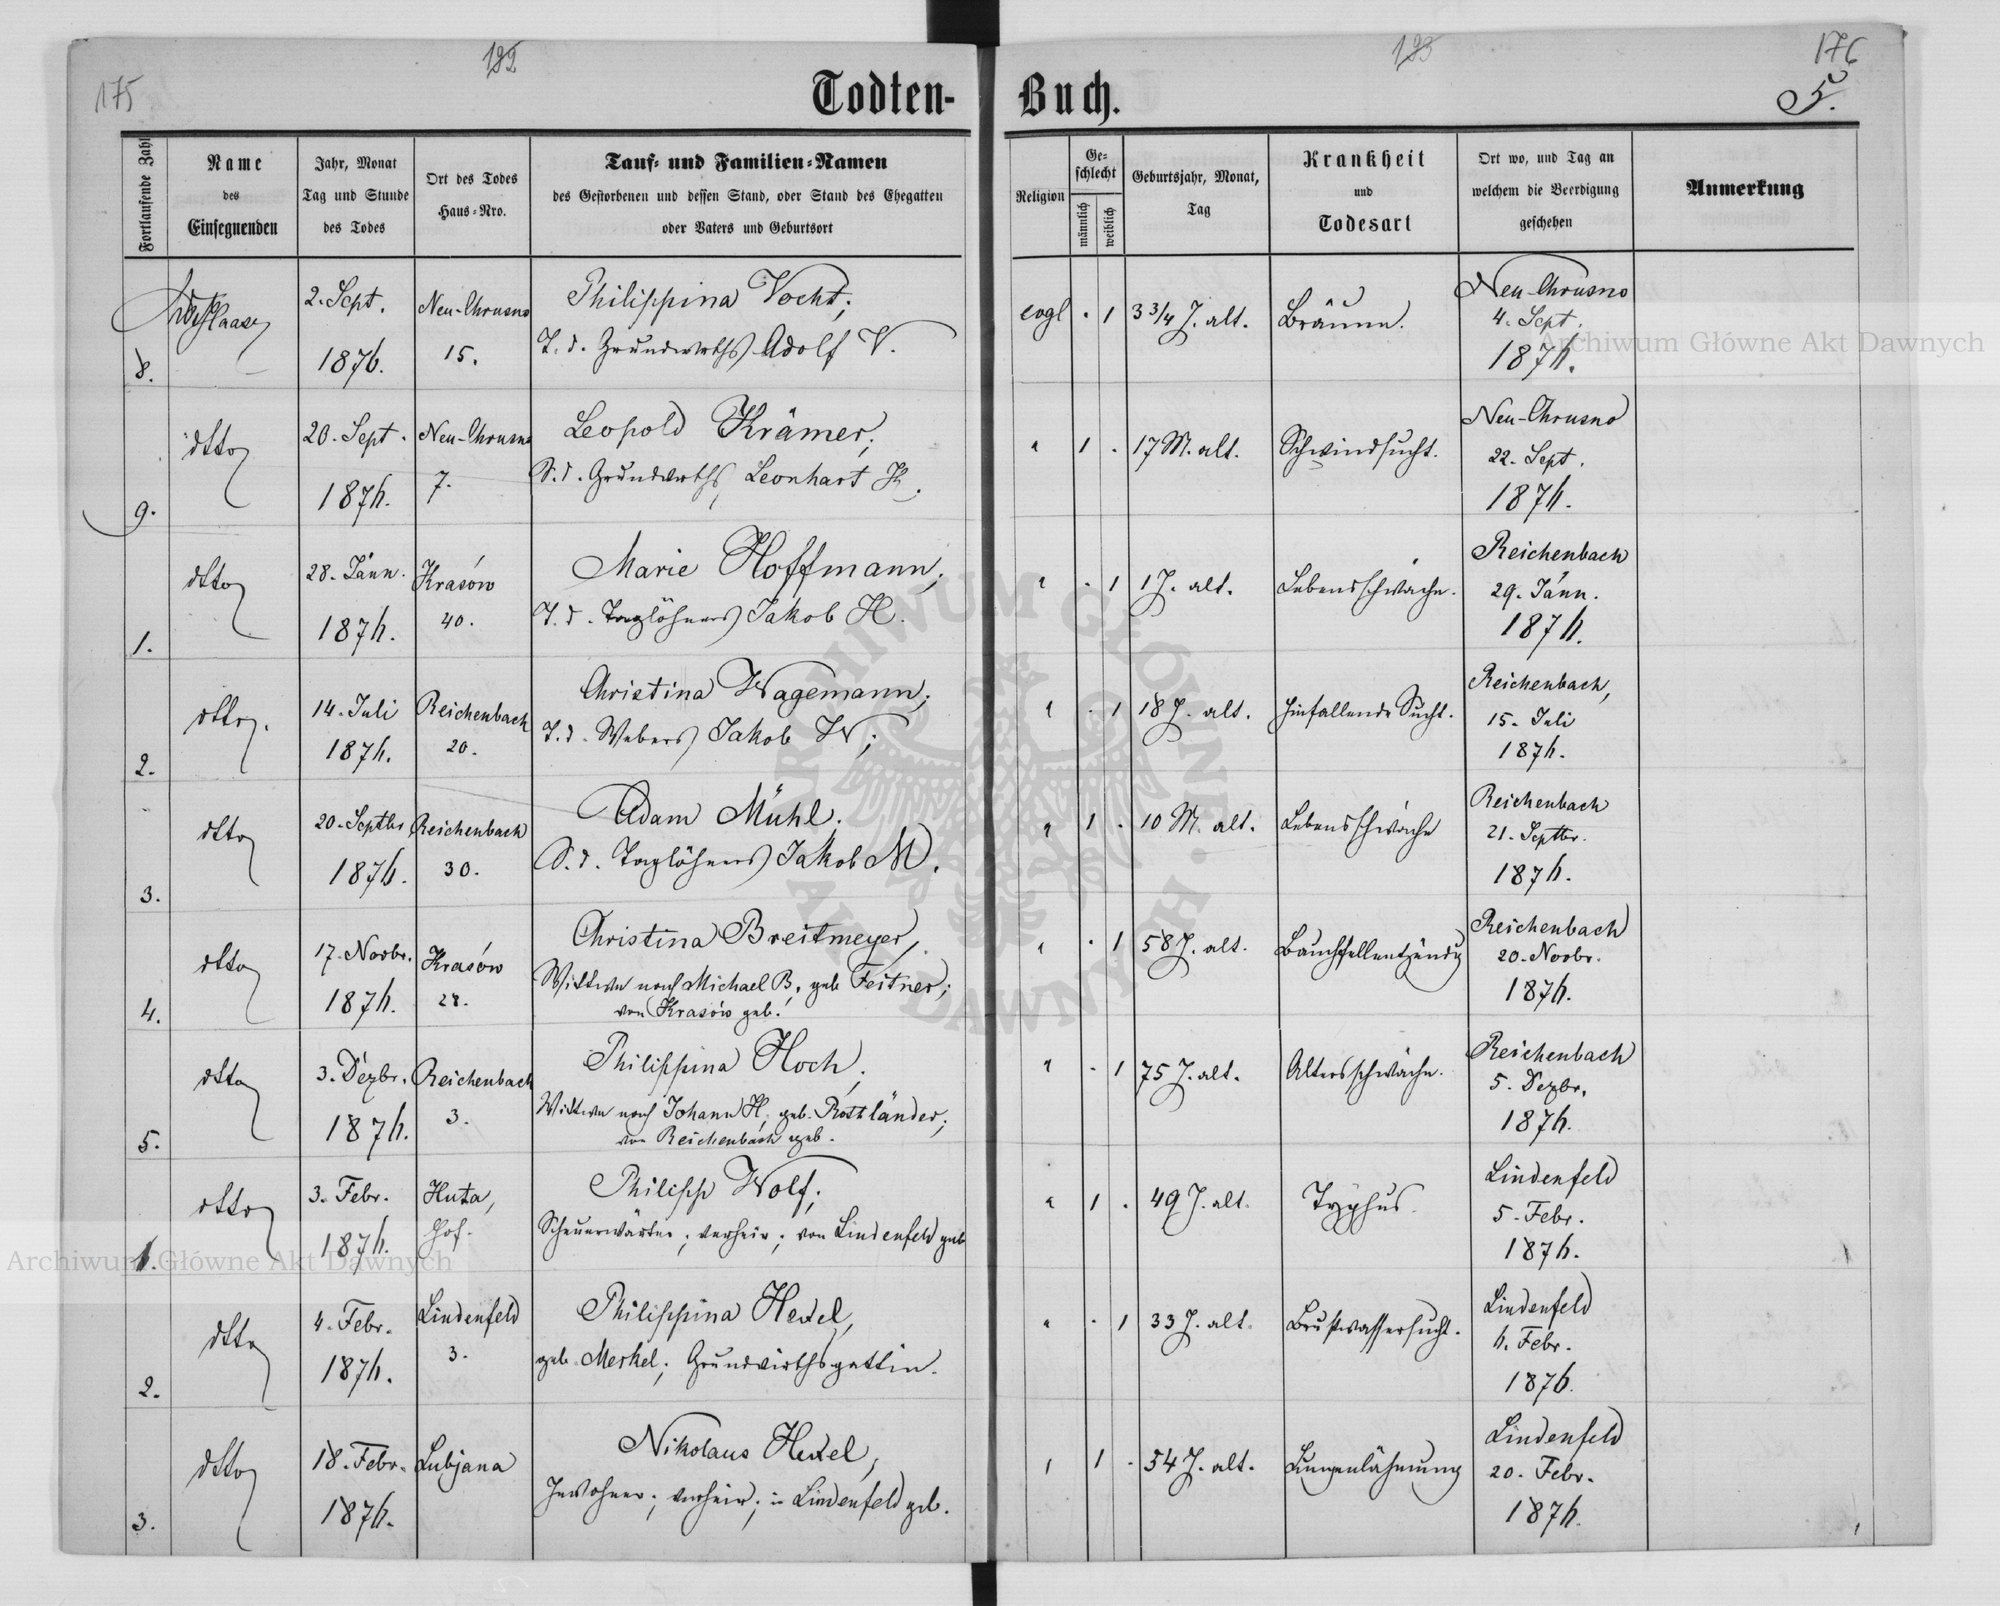 175
192
193
176
5.
Todten-
Buch.
Fortlaufende Zahl
Name
des
Einsegnenden
Jahr, Monat
Tag und Stunde
des Todes
Ort des Todes
Haus-Nro.
Tauf- und Familien-Namen
des Gestorbenen und dessen Stand, oder Stand des Ehegatten
oder Vaters und Geburtsort
Religion
Ge-
schlecht
männlich
weiblich
Geburtsjahr, Monat,
Tag
Krankheit
und
Todesart
Ort wo, und Tag an
welchem die Beerdigung
geschehen
Anmerkung
8.
2. Sept.
1876.
Neu-Chrusno
15.
Philippina Vocht;
T. d. Grundwirths Adolf V.
evgl . 1
3 3/4 J. alt.
Bräune.
Neu-Chrusno
4. Sept.
1876.
9.
dtto
20. Sept.
1876.
Neu-Chrusno
7.
Leopold Krämer;
S. d. Grundwirths Leonhart K.
" 1 .
17 M. alt.
Schwindsucht.
Neu-Chrusno
22. Sept.
1876.
1.
dtto
28. Jänn.
1876.
Krasów
40.
Marie Hoffmann;
T. d. Taglöhners Jakob H.
" . 1
1 J. alt.
Lebensschwäche.
Reichenbach
29. Jänn.
1876.
2.
dtto.
14. Juli
1876.
Reichenbach
20.
Christina Wagemann;
T. d. Webers Jakob W;
" . 1
18 J. alt.
Hinfallende Sucht.
Reichenbach,
15. Juli
1876.
3.
dtto
20. Septbr
1876.
Reichenbach
30.
Adam Mühl.
S. d. Taglöhners Jakob M.
" 1 .
10 M. alt.
Lebensschwäche
Reichenbach
21. Septbr.
1876.
4.
dtto
17. Novbr.
1876.
Krasów
28.
Christina Breitmeyer,
Wittwe nach Michael B, geb Feitner;
von Krasów geb.
" . 1
58 J. alt.
Bauchfellentzündg
Reichenbach
20. Novbr.
1876.
5.
dtto
3. Dezbr.
1876.
Reichenbach
3.
Philippina Hoch,
Wittwe nach Johann H, geb. Rothländer;
von Reichenbach geb.
" . 1
75 J. alt.
Altersschwäche.
Reichenbach
5. Dezbr.
1876.
1.
dtto
3. Febr.
1876.
Huta,
Hof.
Philipp Wolf;
Scheuerwärter; verheir; von Lindenfeld geb
" 1 .
49 J. alt.
Typhus.
Lindenfeld
5. Febr.
1876.
2.
dtto
4. Febr.
1876.
Lindenfeld
3.
Philippina Hexel,
geb. Merkel; Grundwirthsgattin.
" . 1
33 J. alt.
Brustwassersucht.
Lindenfeld
6. Febr.
1876.
3.
dtto
18. Febr.
1876.
Lubjana
Nikolaus Hexel,
Inwohner; verheir; in Lindenfeld geb.
" 1 .
54 J. alt.
Lungenlähmung
Lindenfeld
20. Febr.
1876.
Archiwum Główne Akt Dawnych
Archiwum Główne Akt Dawnych
ARCHIWUM GŁÓWNE AKT DAWNYCH